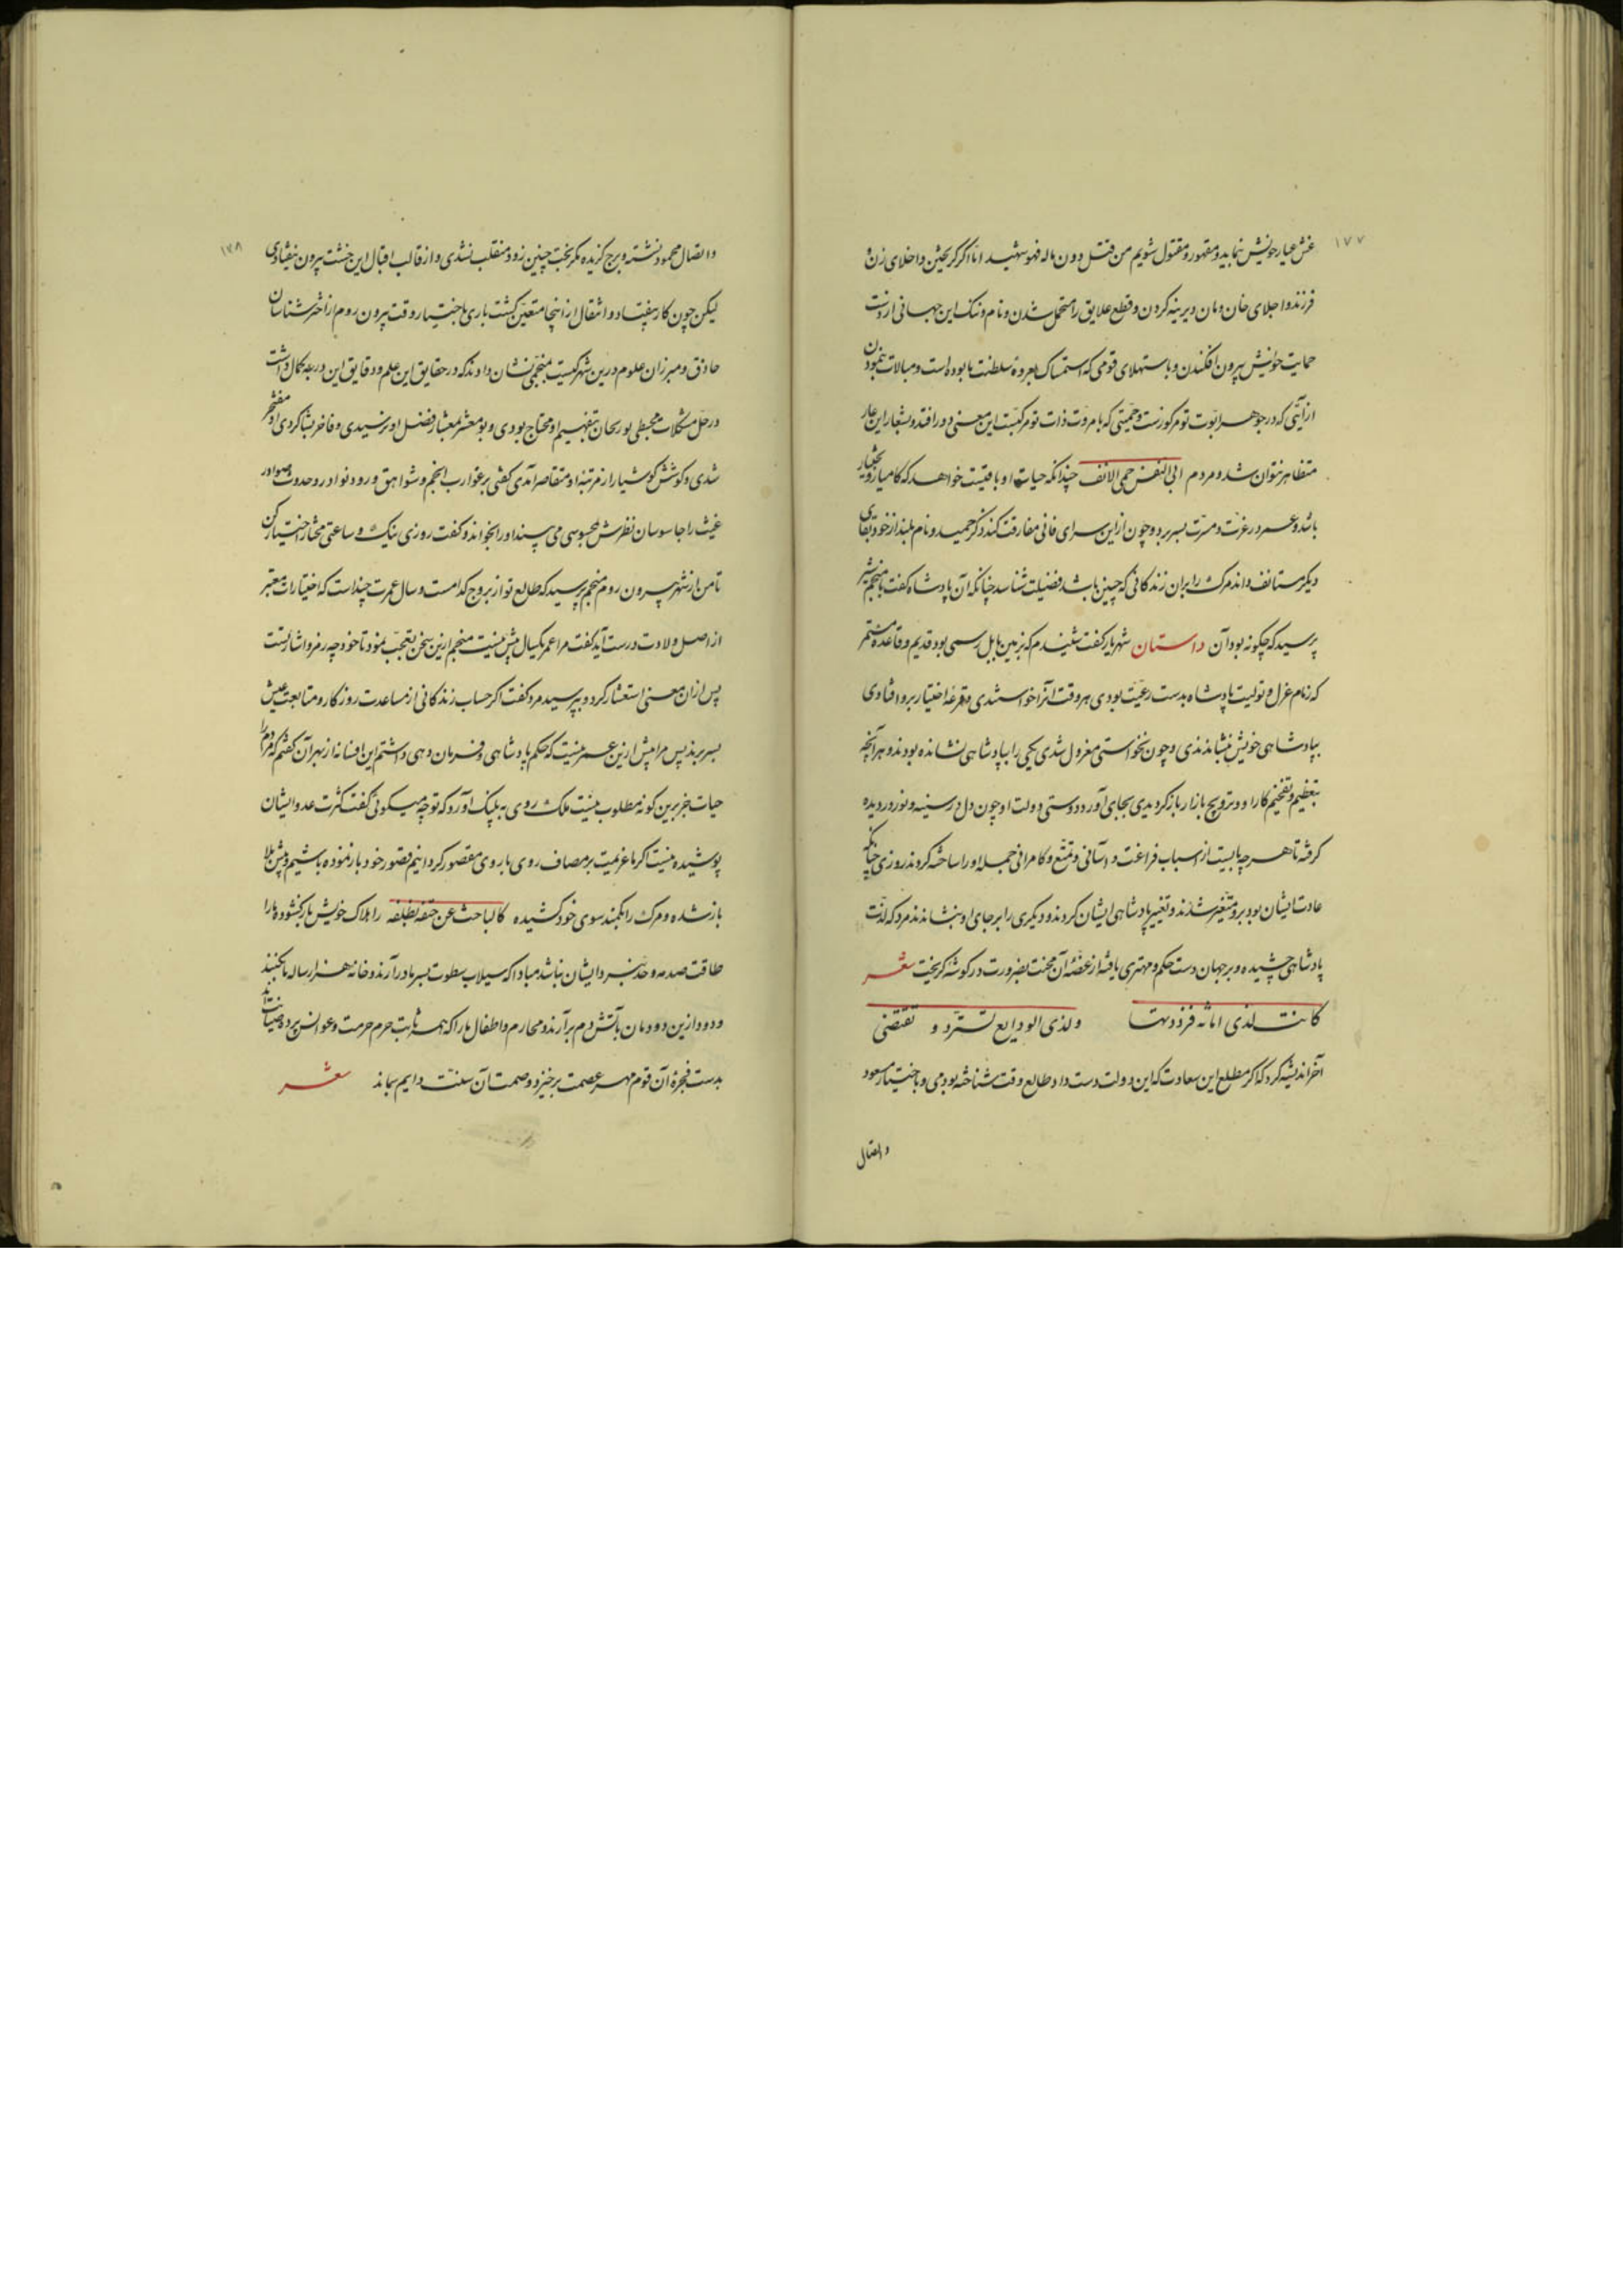 ۱۷۷
غش عیار خویش نماید و مقهور و مقتول شویم من قتل دون ماله فهو شهید اما اگر گریختن و اخلای زن و
فرزند و اجلای خان و مان دیرینه کردن و قطع علایق را متحمل شدن و نام و ننک این جهانی از دست
حمایت خویش بیرون افکندن و باستهلای قومی که استمساک بعروۀ سلطنت ما بوده است و مبالات ننمودن
ازانتی که در جوهر ابوّت تو مرکوزست و حمیّتی که با مروّت ذات تو مرکبست این معنی دور افتد و بشعار این عار
متظاهر نتوان شد و مردم ابی النفس حمی الانف چندانکه حیات او باقیست خواهد که کامیار و بختیار
باشد و عمر در عزّت و مسرّت بسر برد و چون از این سرای فانی مفارقت کند ذکر حمید و نام بلند از خود بقای
دیگر مستانف داند مرک را بران زندگانی که چنین باشد فضیلت شناسد چنانکه آن پادشاه گفت با منجم شیر
پرسید که چگونه بود آن داستان شهریار گفت شنیدم که بزمین بابل رسمی بود قدیم و قاعده مستمر
که زمام عزل و تولیت پادشاه بدست رعیّت بودی هر وقت انرا خواستندی و قرعۀ اختیار برو افتادی
بپادشاهی خویش بنشاندندی و چون نخواستی معزول شدی یکی را بپادشاهی نشانده بودند و هر آنچه
بتعظیم و تفخیم کار او و ترویج بازار باز گردیدی بجای آورد دوستی دولت او چون دل در سینه و نور در دیده
گرفته تا هر چه بایست از اسباب فراغت و آسانی و تمتّع و کامرانی جمله او را ساخته کردند روزی چنانکه
عادت ایشان بود برو متغیّر شدند و تغییر پادشاهی ایشان کردند و دیگری را بر جای او بنشاندند مرد که لذّت
پادشاهی چشیده و بر جهان دست حکم و مهتری یافته از غصّۀ آن محنت بضرورت در گوشه گریخت شعر
کانت لدی امانه فرددتها ولذی الودایع تستردّ و تقتضی
آخر اندیشه کرد که اگر مطلع این سعادت که این دولت دست داد طالع وقت شناخته بودمی و باختیار مسعود
واتصال
۱۷۸
واتصال محمود نشسته و برج گزیده مگر بخت چنین زود منقلب نشدی و از قالب اقبال این خشت بیرون نیفتادی
لیکن چون کار بیفتاد و انتقال از اینجا متعین گشت باری باختیار وقت بیرون روم از اختر شناسان
حاذق و مبرزان علوم درین شهر کیست منجمی نشان دادند که در حقایق این علم و دقایق این درجه کمال داشت
در حلّ مشکلات مجسطی بوریحان بتفهیم او محتاج بودی و بو معشر بمعشار فضل او نرسیدی و فاخر بشاگردی او مفتخر
شدی و کوشش کوشیار از مرتبۀ او متقاصر آمدی گفتی بر غوارب انجم و شواهق و ورود نوادر و حدوث صوادر
غیب را جاسوسان نظرش محسوسی می‌بیند او را بخواند و گفت روزی نیک و ساعتی مختار اختیار کن
تا من از شهر بیرون روم منجم پرسید که طالع تو از بروج کدامست و سال عمرت چند است که اختیارات معتبر
از اصل ولادت درست آید گفت مرا عمر یکسال بیش نیست منجم ازین سخن تعجّب نمود تا خود چه رمز و اشارتست
پس از ان معنی استفسار کرد و بپرسید مرد گفت اگر حساب زندگانی از مساعدت روزگار و متابعت عیش
بسر برند پس مرا بیش ازین عمر نیست که حکم پادشاهی و فرمان‌دهی داشتم این افسانه از بهر آن گفتم که مردم را
حیات جز برین گونه مطلوب نیست ملک روی به پلیک آورد که تو چه میگوئی گفت کثرت عدو ایشان
پوشیده نیست اگر ما عزیمت بر مصاف روی باروی مقصور گردانیم قصور خود باز نموده باشیم و پیش بلا
باز شده و مرک را بکمند سوی خود کشیده کالباحث عن حتفه بظلفه راه هلاک خویش باز گشوده ما را
طاقت صدمه و حدّ نبرد ایشان نباشد مبادا که سیلاب سطوت بسر ما در آرند و خانه هزار ساله ما بکنند
و دود ازین دودمان بآتش دم بر آرند و محارم و اطفال ما را که همه ثابت حرم حرمت و عوانس پرده صیانت اند
بدست فجرۀ آن قوم مهر عصمت برخیزد و وصمت آن سنّت دایم بماند شعر